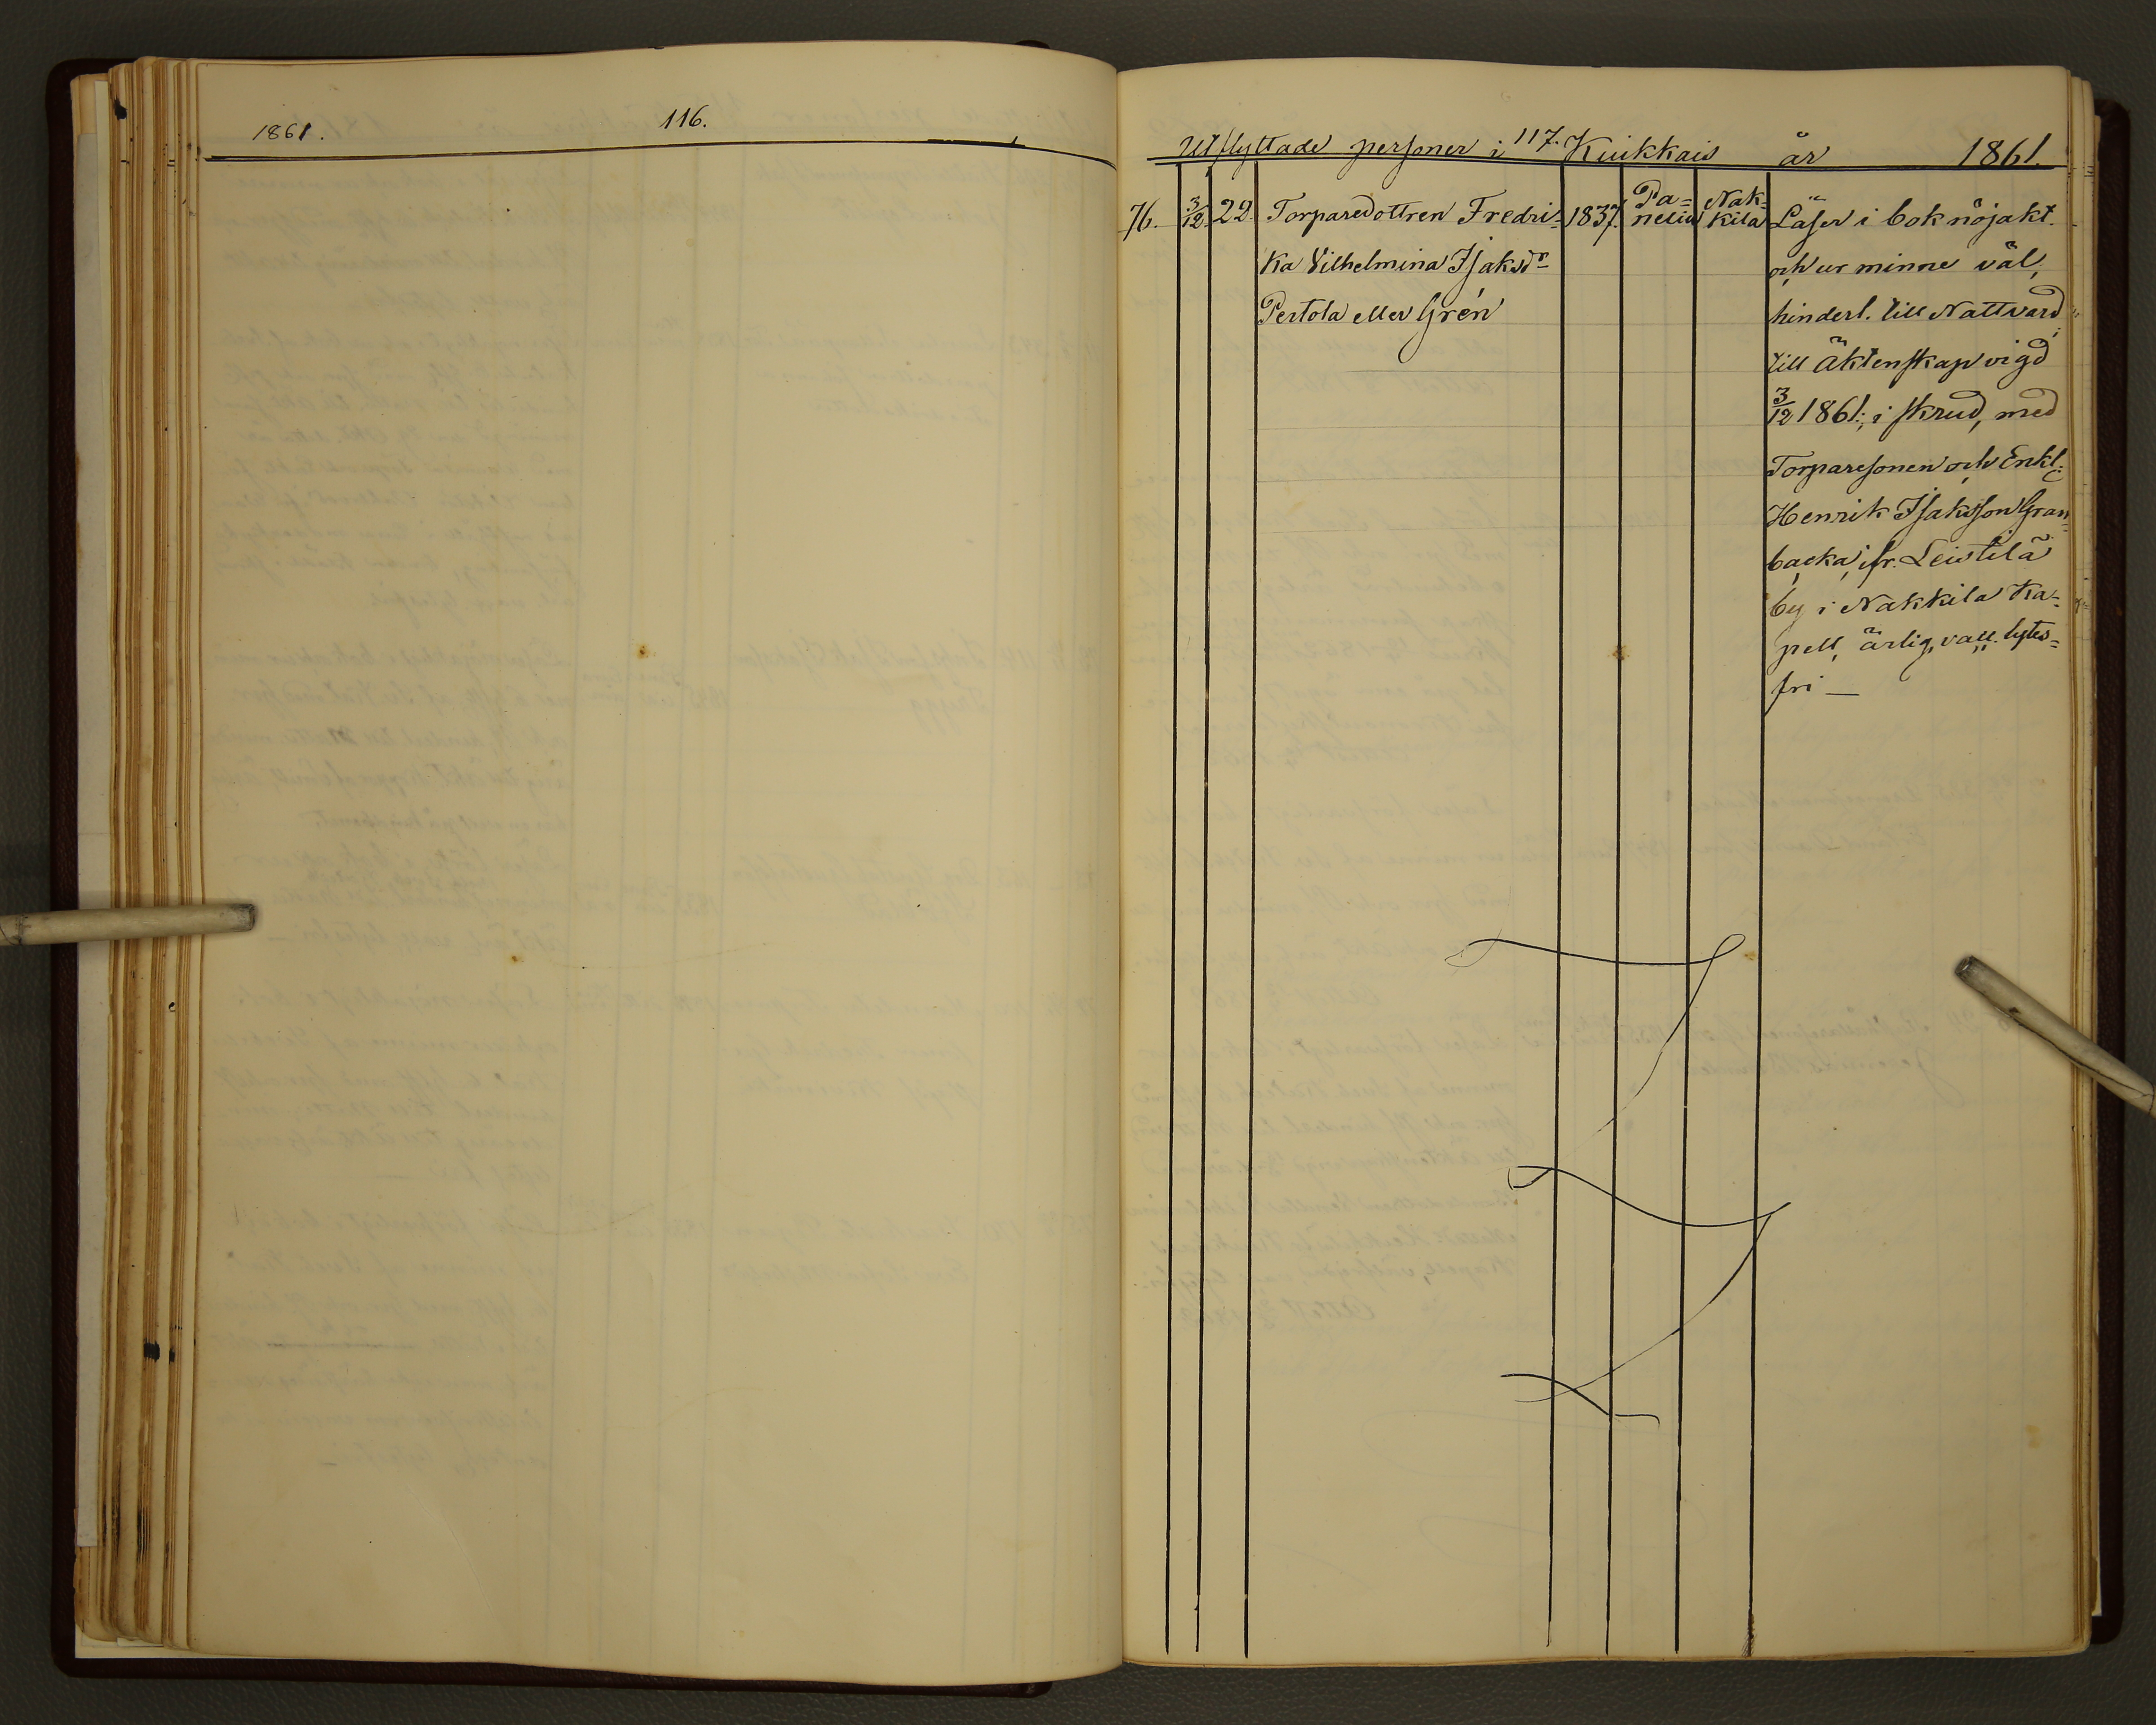 1861.
116.
117.
Utflyttade personer i Kiukkais år 1861.
76. 3/12. 22. Torparedottren Fredri= 1837. Pa= Nak=
nelia kila
ka Vilhelmina Isaksdr
Pertola eller Grén
Läser i bok nöjakt.
och ur minne väl,
hinderl. till Nattvard,
till Äktenskap vigd
3/12 1861, i skrud, med
Torparesonen och Enkl:
Henrik Isaksson Gran=
backa, fr. Leistilä
by i Nakkila Ka=
pell, ärlig, vacc. lytes=
fri —